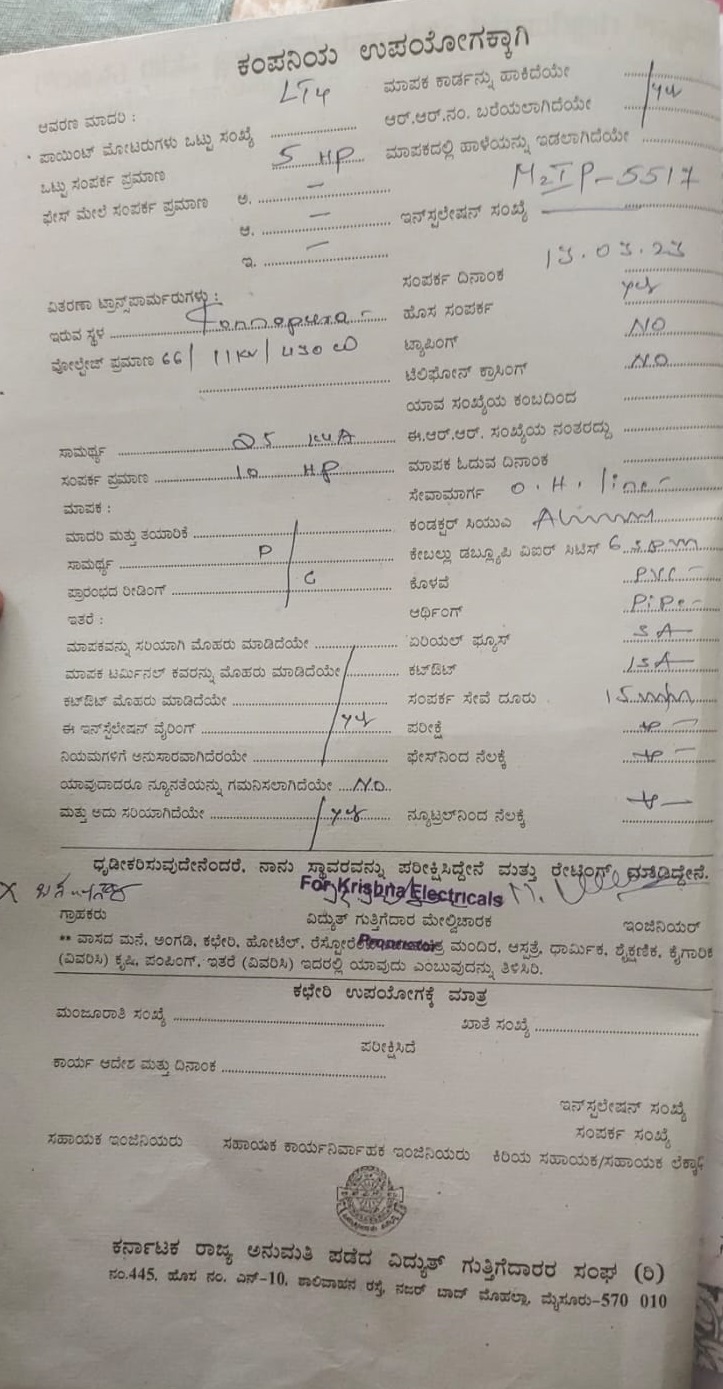 ಕಂಪನಿಯ ಉಪಯೋಗಕ್ಕಾಗಿ
ಆವರಣ ಮಾದರಿ : LT4
ಮಾಪಕ ಕಾರ್ಡನ್ನು ಹಾಕಿದೆಯೇ
ಪಾಯಿಂಟ್ ಮೋಟರುಗಳು ಒಟ್ಟು ಸಂಖ್ಯೆ
ಆರ್.ಆರ್.ನಂ. ಬರೆಯಲಾಗಿದೆಯೇ yes
ಒಟ್ಟು ಸಂಪರ್ಕ ಪ್ರಮಾಣ 5 HP
ಮಾಪಕದಲ್ಲಿ ಹಾಳೆಯನ್ನು ಇಡಲಾಗಿದೆಯೇ
ಫೇಸ್ ಮೇಲೆ ಸಂಪರ್ಕ ಪ್ರಮಾಣ ಅ. –
M2IP-5517
ಆ. –
ಇನ್‌ಸ್ಟಲೇಷನ್ ಸಂಖ್ಯೆ
ಇ. –
ಸಂಪರ್ಕ ದಿನಾಂಕ 13.03.23
ವಿತರಣಾ ಟ್ರಾನ್ಸ್‌ಪಾರ್ಮರುಗಳು :
ಇರುವ ಸ್ಥಳ
ಹೊಸ ಸಂಪರ್ಕ yes
ವೋಲ್ಟೇಜ್ ಪ್ರಮಾಣ 66/ 11KV/
ಟ್ಯಾಪಿಂಗ್ NO
ಟೆಲಿಫೋನ್ ಕ್ರಾಸಿಂಗ್ NO
ಯಾವ ಸಂಖ್ಯೆಯ ಕಂಬದಿಂದ
ಸಾಮರ್ಥ್ಯ 25 KVA
ಈ.ಆರ್.ಆರ್. ಸಂಖ್ಯೆಯ ನಂತರದ್ದು
ಸಂಪರ್ಕ ಪ್ರಮಾಣ 10 HP
ಮಾಪಕ ಓದುವ ದಿನಾಂಕ
ಮಾಪಕ :
ಸೇವಾಮಾರ್ಗ O.H. line
ಮಾದರಿ ಮತ್ತು ತಯಾರಿಕೆ
ಕಂಡಕ್ಟರ್ ಸಿಯುಎ
ಸಾಮರ್ಥ್ಯ P
ಕೇಬಲ್ಲು ಡಬ್ಲ್ಯೂಪಿ ವಿಐರ್ ಸಿಟಿಸ್
ಪ್ರಾರಂಭದ ರೀಡಿಂಗ್ C
ಕೊಳವೆ PVC
ಇತರೆ :
ಆರ್ಥಿಂಗ್ Pipe
ಮಾಪಕವನ್ನು ಸರಿಯಾಗಿ ಮೊಹರು ಮಾಡಿದೆಯೇ
ಏರಿಯಲ್ ಫ್ಯೂಸ್ 5A
ಮಾಪಕ ಟರ್ಮಿನಲ್ ಕವರನ್ನು ಮೊಹರು ಮಾಡಿದೆಯೇ
ಕಟ್‌ಔಟ್ 15A
ಕಟ್‌ಔಟ್ ಮೊಹರು ಮಾಡಿದೆಯೇ
ಸಂಪರ್ಕ ಸೇವೆ ದೂರು
ಈ ಇನ್‌ಸ್ಟಲೇಷನ್ ವೈರಿಂಗ್ yes
ಪರೀಕ್ಷೆ
ನಿಯಮಗಳಿಗೆ ಅನುಸಾರವಾಗಿದೆರಯೇ
ಫೇಸ್‌ನಿಂದ ನೆಲಕ್ಕೆ
ಯಾವುದಾದರೂ ನ್ಯೂನತೆಯನ್ನು ಗಮನಿಸಲಾಗಿದೆಯೇ No
ಮತ್ತು ಅದು ಸರಿಯಾಗಿದೆಯೇ yes
ನ್ಯೂಟ್ರಲ್‌ನಿಂದ ನೆಲಕ್ಕೆ
ಧೃಡೀಕರಿಸುವುದೇನೆಂದರೆ, ನಾನು ಸ್ಥಾವರವನ್ನು ಪರೀಕ್ಷಿಸಿದ್ದೇನೆ ಮತ್ತು ರೇಟಿಂಗ್ ಮಾಡಿದ್ದೇನೆ.
For Krishna Electricals
ಗ್ರಾಹಕರು ವಿದ್ಯುತ್ ಗುತ್ತಿಗೆದಾರ ಮೇಲ್ವಿಚಾರಕ ಇಂಜಿನಿಯರ್
Proprietor
** ವಾಸದ ಮನೆ, ಅಂಗಡಿ, ಕಛೇರಿ, ಹೋಟೆಲ್, ಮಂದಿರ, ಆಸ್ಪತ್ರೆ, ಧಾರ್ಮಿಕ, ಶೈಕ್ಷಣಿಕ, ಕೈಗಾರಿಕೆ
(ವಿವರಿಸಿ) ಕೃಷಿ, ಪಂಪಿಂಗ್, ಇತರೆ (ವಿವರಿಸಿ) ಇದರಲ್ಲಿ ಯಾವುದು ಎಂಬುವುದನ್ನು ತಿಳಿಸಿರಿ.
ಕಛೇರಿ ಉಪಯೋಗಕ್ಕೆ ಮಾತ್ರ
ಮಂಜೂರಾತಿ ಸಂಖ್ಯೆ ಖಾತೆ ಸಂಖ್ಯೆ
ಪರೀಕ್ಷಿಸಿದೆ
ಕಾರ್ಯ ಆದೇಶ ಮತ್ತು ದಿನಾಂಕ
ಇನ್‌ಸ್ಟಲೇಷನ್ ಸಂಖ್ಯೆ
ಸಂಪರ್ಕ ಸಂಖ್ಯೆ
ಸಹಾಯಕ ಇಂಜಿನಿಯರು ಸಹಾಯಕ ಕಾರ್ಯನಿರ್ವಾಹಕ ಇಂಜಿನಿಯರು ಕಿರಿಯ ಸಹಾಯಕ/ಸಹಾಯಕ
ಕರ್ನಾಟಕ ರಾಜ್ಯ ಅನುಮತಿ ಪಡೆದ ವಿದ್ಯುತ್ ಗುತ್ತಿಗೆದಾರರ ಸಂಘ (ರಿ)
ನಂ.445, ಹೊಸ ನಂ. ಎನ್-10, ಶಾಲಿವಾಹನ ರಸ್ತೆ, ನಜರ್ ಬಾದ್ ಮೊಹಲ್ಲಾ, ಮೈಸೂರು-570 010